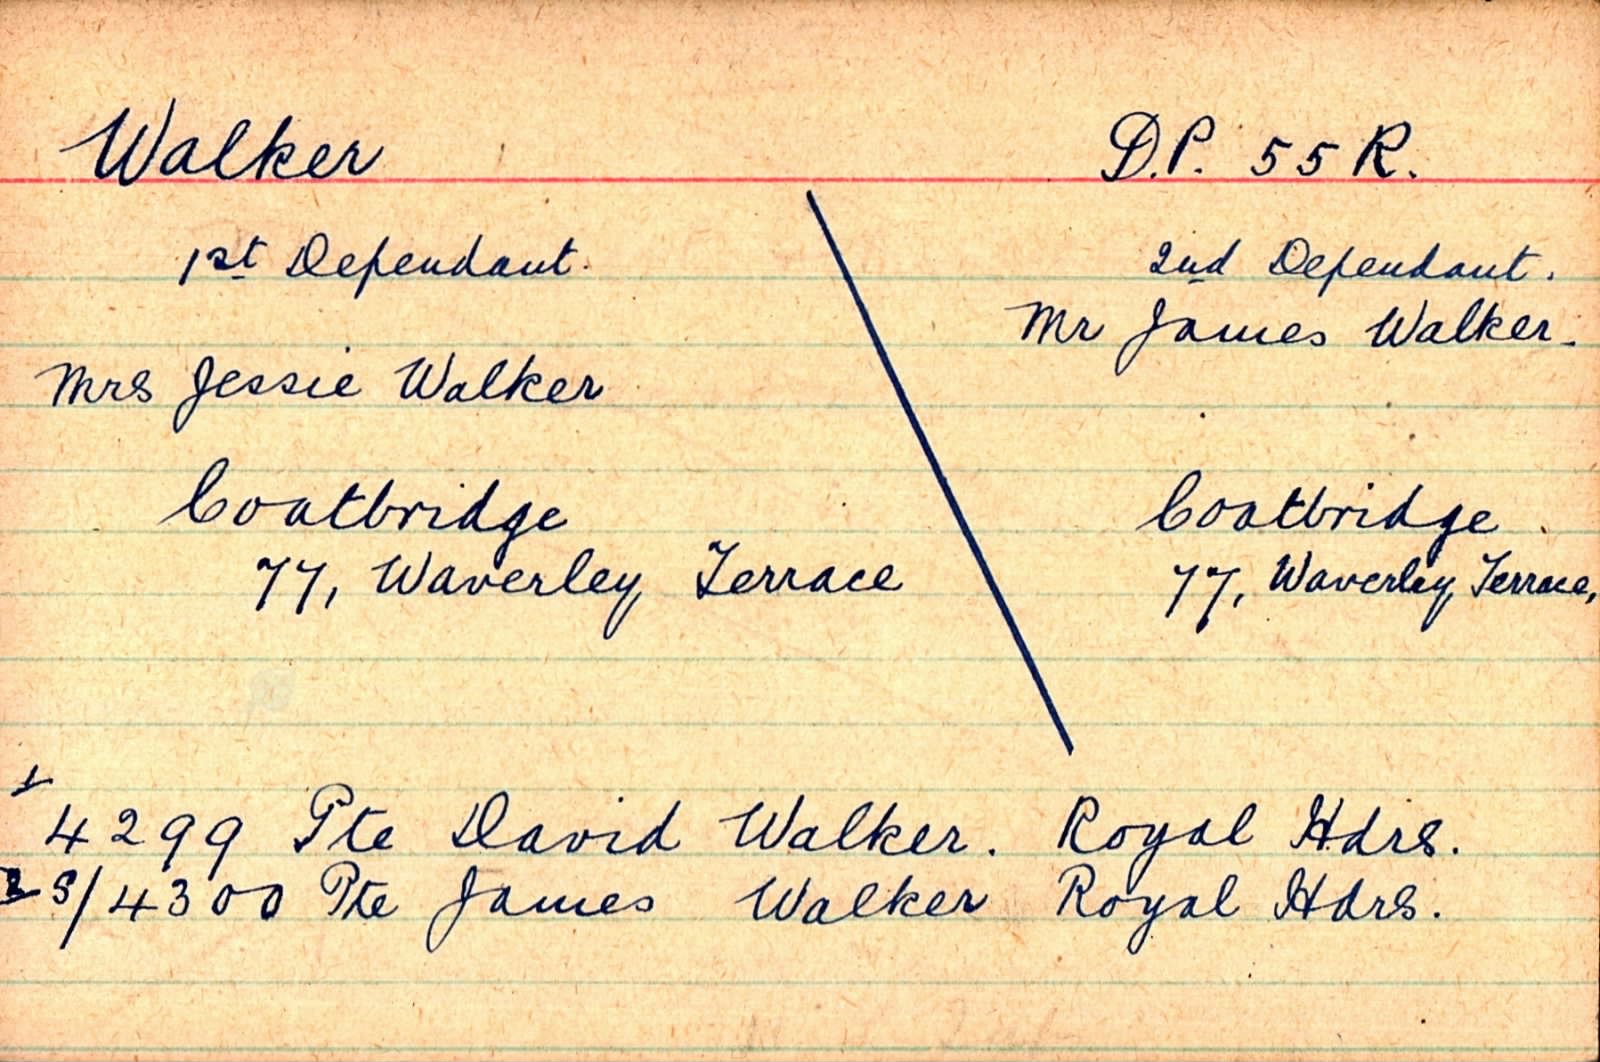 Walker D.P. 55 R.
1st Dependant. 2nd Dependant.
Mr James Walker.
Mrs Jessie Walker
Coatbridge Coatbridge.
77, Waverley Terrace 77, Waverley Terrace,
1
4299 Pte David Walker. Royal Hdrs.
2 S/4300 Pte James Walker Royal Hdrs.